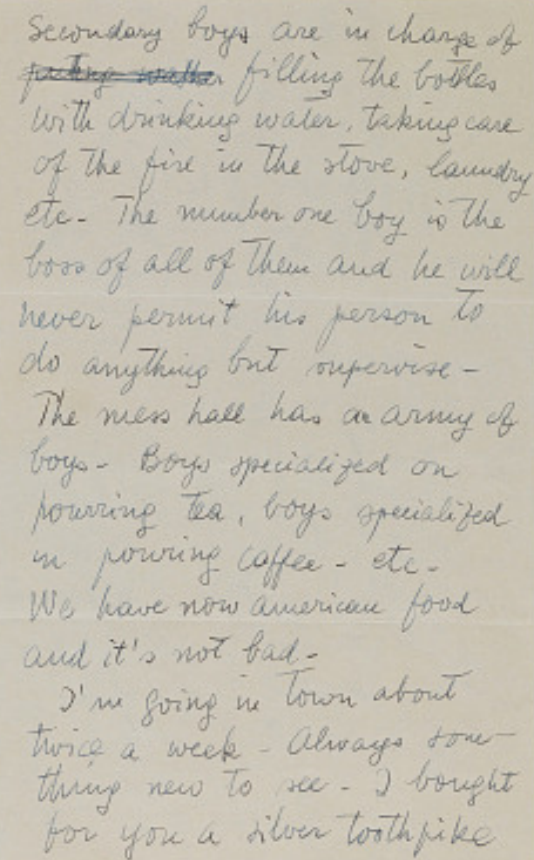 Secondary boys are in charge of
filling the bottles
with drinking water, taking care
of the fire in the stove, laundry
etc - The number one boy is the
boss of all of them and he will
never permit his person to
do anything but supervise -
The mess hall has an army of
boys - Boys specialized on
pourring tea, boys specialized
in pouring caffee - etc -
We have now american food
and it's not bad -
I'm going in town about
twice a week - Always some-
thing new to see - I bought
for you a silver toothpike